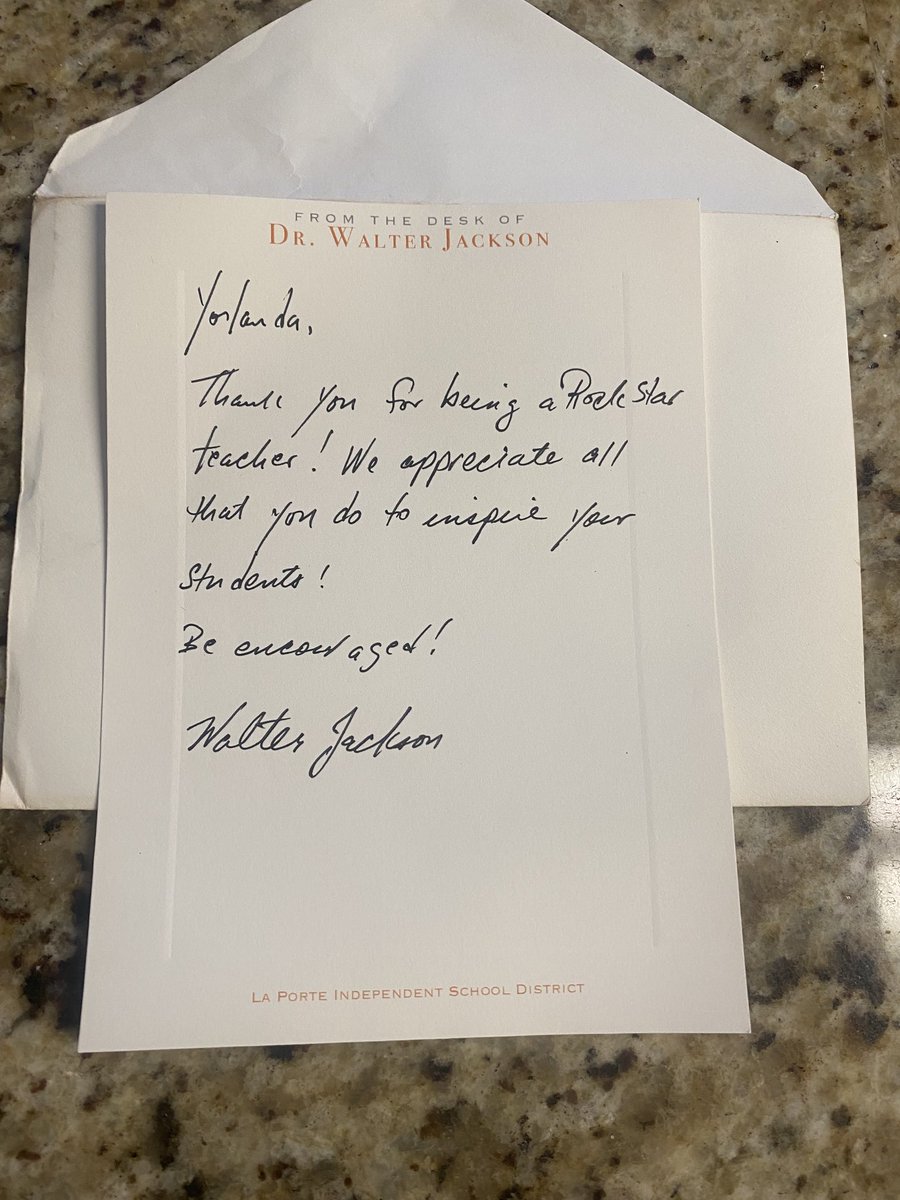 FROM THE DESK OF
DR. WALTER JACKSON
Yorlanda,
Thank you for being a Rock Star
teacher! We appreciate all
that you do to inspire your
students!
Be encouraged!
Walter Jackson
LA PORTE INDEPENDENT SCHOOL DISTRICT